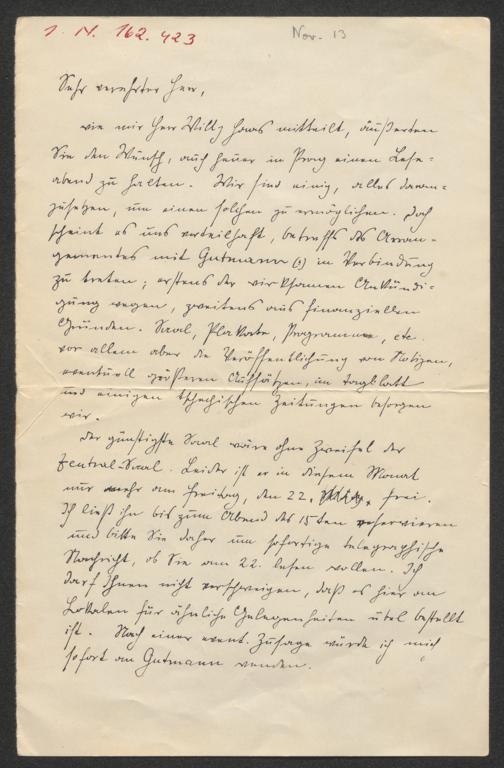 I. N. 162.423
Nov. 13
Sehr verehrter Herr,
wie mir Herr Willy Haas mitteilt, äußerten
Sie den Wunsch, auch heuer in Prag einen Lese-
abend zu halten. Wir sind einig, alles daran-
zusetzen, um einen solchen zu ermöglichen. Doch
scheint es uns vorteilhaft, betreffs des Arran-
gementes mit Gutmann (s) in Verbindung
zu treten; erstens der wirksamen Ankündi-
gung wegen, zweitens aus finanziellen
Gründen. Saal, Plakate, Programme, etc.
vor allem aber die Veröffentlichung von Notizen,
eventuell größeren Aufsätzen, im Tagblatt
und einigen tschechischen Zeitungen besorgen
wir.
Der günstigste Saal wäre ohne Zweifel der
Zentral-Saal. Leider ist er in diesem Monat
nur mehr am Freitag, den 22. frei.
Ich ließ ihn bis zum Abend des 15ten reservieren
und bitte Sie daher um sofortige telegraphische
Nachricht, ob Sie am 22. lesen wollen. Ich
darf Ihnen nicht verschweigen, daß es hier um
Lokalen für ähnliche Gelegenheiten übel bestellt
ist. Nach einer event. Zusage würde ich mich
sofort an Gutmann wenden.